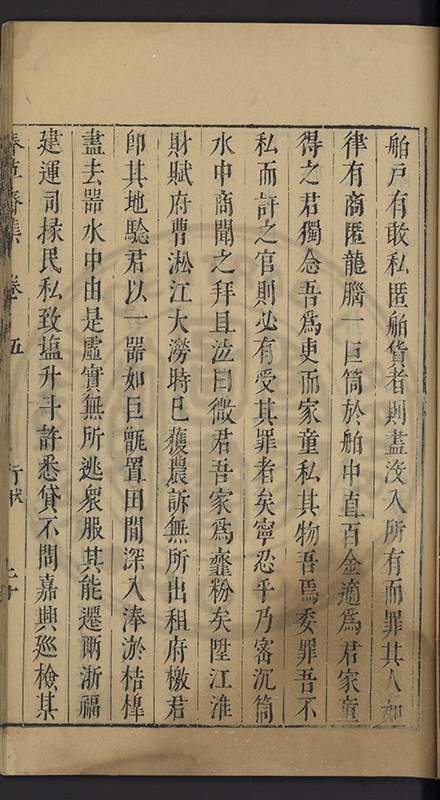 舶戸有敢私匿舶貨者則盡沒入所有而罪其人如
律有商匿龍腦一巨筒於舶中直百金適爲君家童
得之君獨念吾爲吏而家童私其物吾焉委罪吾不
私而許之官則必有受其罪者矣寧忍乎乃密沉筒
水中商聞之拜且泣曰微君吾家爲虀粉矣陞江淮
財賦府曹淞江大澇時已獲農訴無所出租府檄君
卽其地驗君以一器如巨甑置田間深入淎淤桔槹
盡去器水中由是虛實無所逃衆服其能遷兩浙福
建運司掾民私致塩升斗許悉貸不問嘉興廵檢某
春草齋集 卷五 行狀 二十